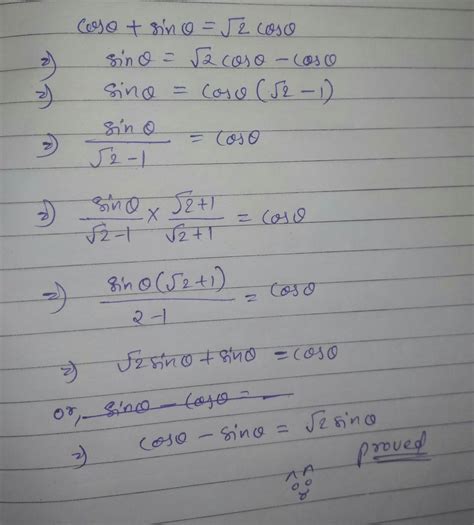 cosθ + sinθ = √2 cosθ
⇒) sinθ = √2 cosθ - cosθ
⇒) sinθ = cosθ (√2 - 1)
⇒) sinθ / √2 - 1 = cosθ
⇒) sinθ / √2 - 1 × √2+1 / √2+1 = cosθ
⇒) sinθ (√2+1) / 2 - 1 = cosθ
⇒) √2 sinθ + sinθ = cosθ
or, sinθ - cosθ =
⇒) cosθ - sinθ = √2 sinθ
proved